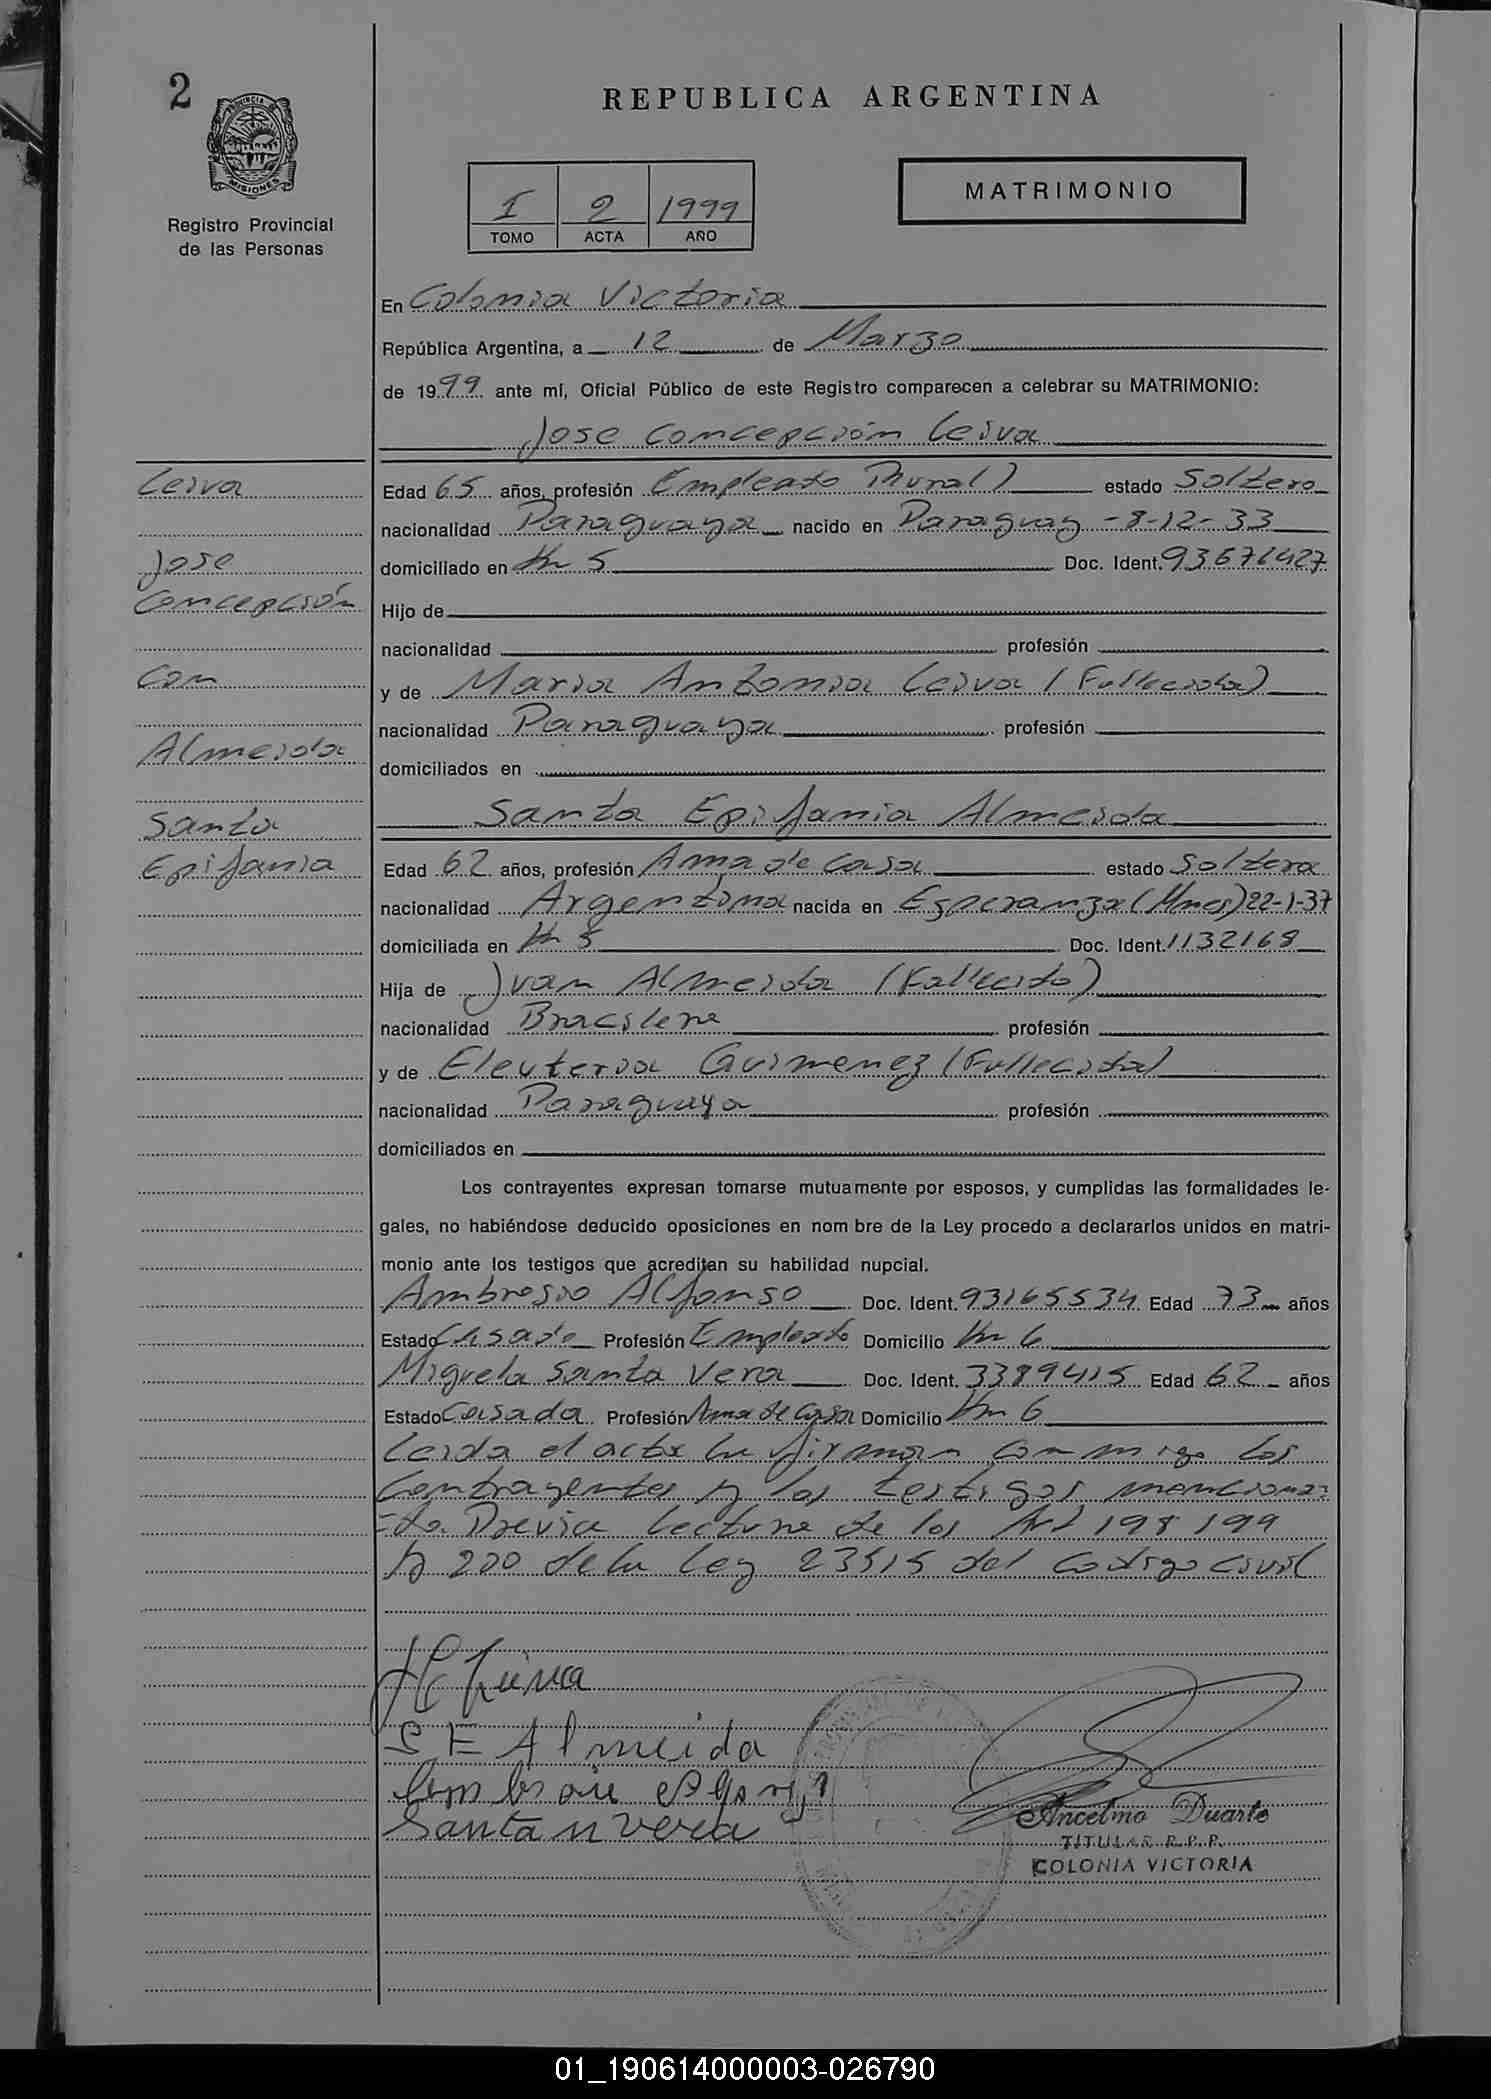 2
PROVINCIA DE
MISIONES
Registro Provincial
de las Personas
REPUBLICA ARGENTINA
I 2 1999
TOMO ACTA AÑO
MATRIMONIO
En Colonia Victoria
República Argentina, a 12 de Marzo
de 1999 ante mí, Oficial Público de este Registro comparecen a celebrar su MATRIMONIO:
Jose Concepción Leiva
Leiva
Jose
Concepción
Con
Almeida
Santa
Epifania
Edad 65 años, profesión Empleado Rural) estado Soltero
nacionalidad Paraguaya nacido en Paraguay - 8-12-33
domiciliado en Km 5 Doc. Ident. 93671427
Hijo de
nacionalidad profesión
y de Maria Antonia Leiva (Fallecida)
nacionalidad Paraguaya profesión
domiciliados en
Santa Epifania Almeida
Edad 62 años, profesión Ama de Casa estado Soltera
nacionalidad Argentina nacida en Esperanza (Mnes) 22-1-37
domiciliada en Km 5 Doc. Ident. 1132168
Hija de Juan Almeida (Fallecido)
nacionalidad Bracilera profesión
y de Eleuteria Guimenez (Fallecida)
nacionalidad Paraguaya profesión
domiciliados en
Los contrayentes expresan tomarse mutuamente por esposos, y cumplidas las formalidades le-
gales, no habiéndose deducido oposiciones en nom bre de la Ley procedo a declararlos unidos en matri-
monio ante los testigos que acreditan su habilidad nupcial.
Ambrosio Alfonso Doc. Ident. 93165534 Edad 73 años
Estado Casado Profesión Empleado Domicilio Km 6
Miguela Santa Vera Doc. Ident. 3389415 Edad 62 años
Estado Casada Profesión Ama de Casa Domicilio Km 6
Leida el acta la firman conmigo los
Contrayentes y los testigos menciona=
=do Previa lectura de los Art 198 199
y 200 de la Ley 23515 del Codigo Civil
JC Leiva
S E Almeida
Santa M Vera
Ancelmo Duarte
TITULAR R.P.P.
COLONIA VICTORIA
01_190614000003-026790